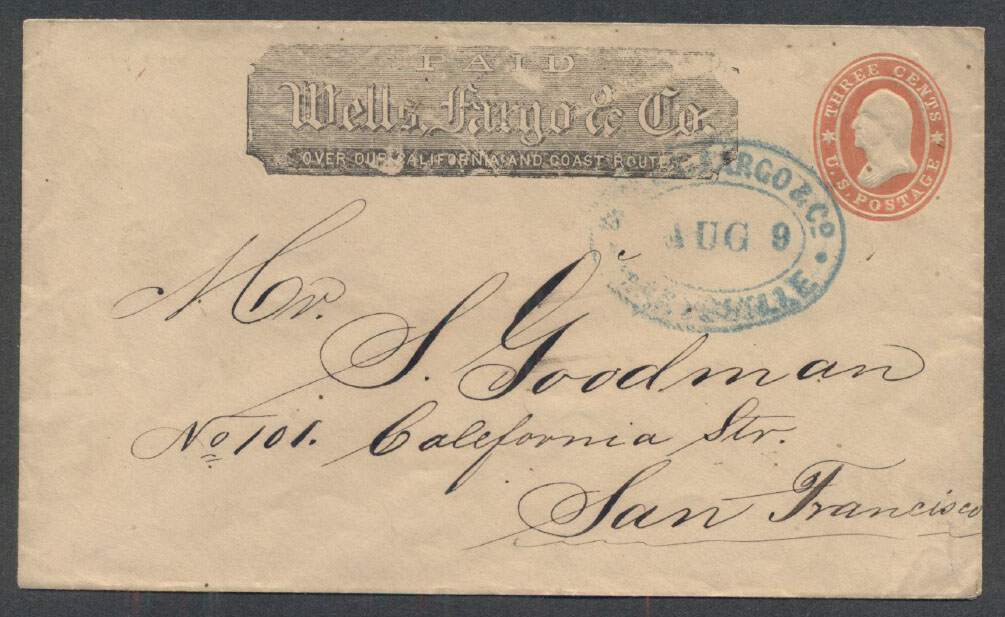 PAID
Wells, Fargo & Co.
OVER OUR CALIFORNIA AND COAST ROUTES
THREE CENTS
U.S. POSTAGE
FARGO & Co.
AUG 9
Mr.
S. Goodman
No 101. California Str.
San Francisco